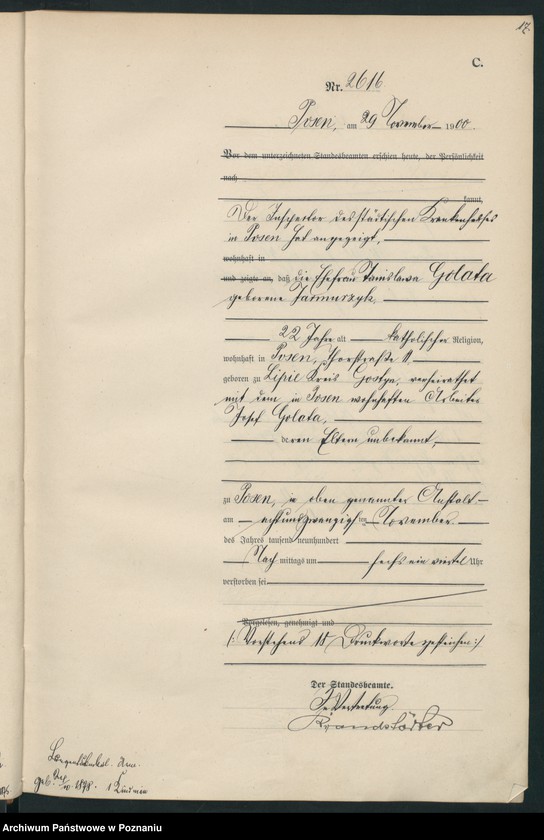 17.
C.
Nr. 2616
Posen, am 29 November 1900.
Vor dem unterzeichneten Standesbeamten erschien heute, der Persönlichkeit
nach
kannt,
Der Inspector des städtischen Krankenhauses
in Posen hat angezeigt,
wohnhaft in
und zeigte an, daß die Ehefrau Stanislawa Golata
geborene
22 Jahre alt katholischer Religion,
wohnhaft in Posen, Thorstraße 11
geboren zu Lipie Kreis Gostyn, verheirathet
mit dem in Posen wohnhaften Arbeiter
Josef Golata,
deren Eltern unbekannt,
zu Posen, in oben genannter Anstalt
am achtundzwanzigsten November
des Jahres tausend neunhundert
Nach mittags um sechs ein viertel Uhr
verstorben sei
Vorgelesen, genehmigt und
/: Vorstehend 18 Druckworte gestrichen :/
Der Standesbeamte.
In Vertretung
Brandstätter
geb. 1878.
Archiwum Państwowe w Poznaniu